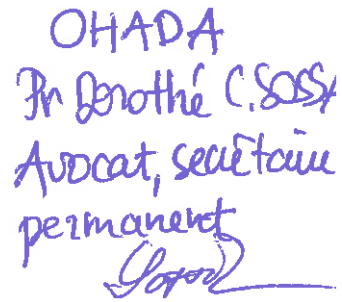 OHADA
Pr Dorothé C. SOSSA
Avocat, secrétaire
permanent